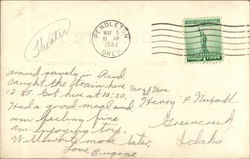 Theater
PENDLETON
MAY 5
11 AM
1944
OREG.
Arrived safely in Pend.
Caught the train here
12:15. Got here at 10:30.
Had a good meal and
am feeling fine
am enjoying trip.
Will write more later,
Love Eugene
Mr & Mrs
Henry F Nuxoll
Greencreek
Idaho